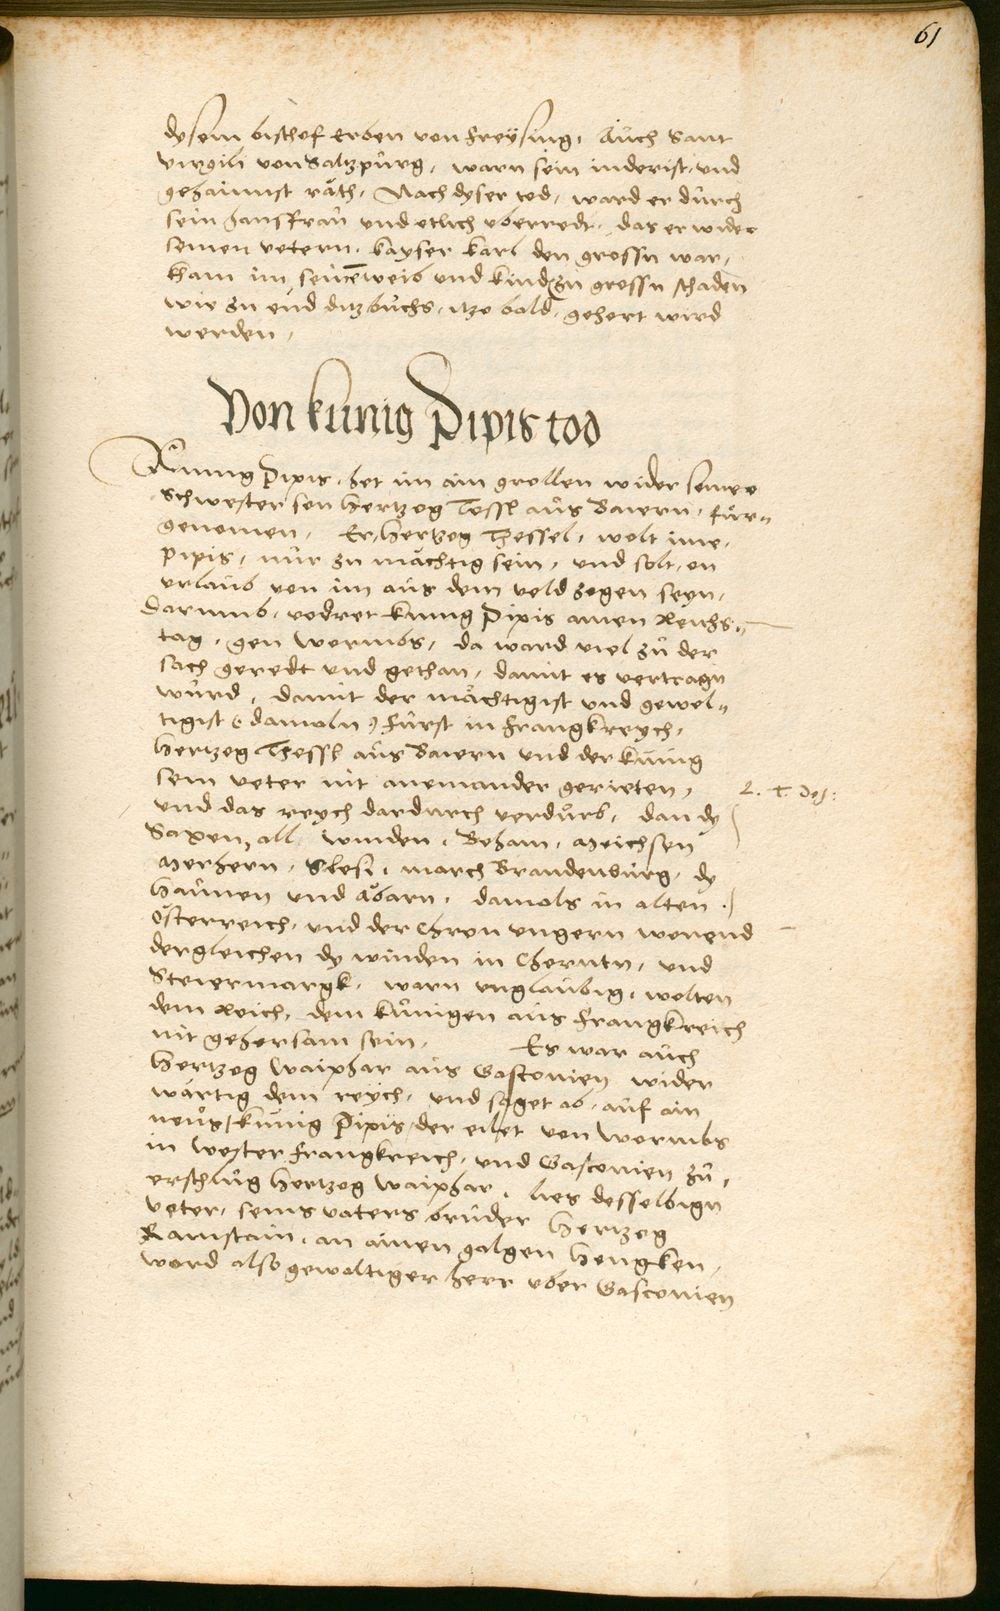 61
dysem bischof Erben von Freÿsing, Auch Sant
Virgili von Saltzpurg, warn sein inderist, und
gehaimist räth, Nach dyser tod, ward er durch
sein hausfrau und etlich uberredt, das er wider
seinen vetern, kayser Karl den grossn war,
kham im, seinem weib und kind zu grossn schaden
wie zu end ditz buchs, itzo bald, gehert wird
werden,
Von kunig Pipis tod
Kunig Pipis, het im ain grollen wider seiner
Schwester son hertzog Tessl aus Baiern, fur=
genomen, Er, hertzog Thessel, wolt ime,
pipis, nur zu mächtig sein, und solt, on
urlaub von im aus dem veld zogen seyn,
Darumb, vodret kunig Pipis ainen Reichs=
tag, gen Wormbs, da ward viel zu der
sach geredt und gethan, damit es vertragn
wurd, damit der mächtigist und gewel=
tigist (damoln) Fürst in Frangkreych,
hertzog Thessl aus Baiern und der kunig
sein veter nit aneinander gerieten,
und das reych dardurch verdurb, dan dy
Saxen, all winden, Beham, Meichsen
Merhern, Slesi, march Brandenburg, dy
haunen und Abarn, damals in alten
Österreich, und der Chron ungern wonend
dergleichen dy winden in Cherntn, und
Steiermargk, warn unglaubig, wolten
dem Reich, dem kunigen aus Frangkreich
nit gehorsam sein, Es war auch
hertzog Waiphar aus Gasconien wider
wärtig dem reÿch, und saget ab, auf ain
neus, kunig Pipis, der eilet von Wormbs
in wester Frangkreich, und Gasconien zu,
erschlug hertzog Waiphar, lies desselbign
veter, seins vaters bruder hertzog
Ramstain, an ainen galgen hengken,
ward also gewaltiger herr uber Gasconien